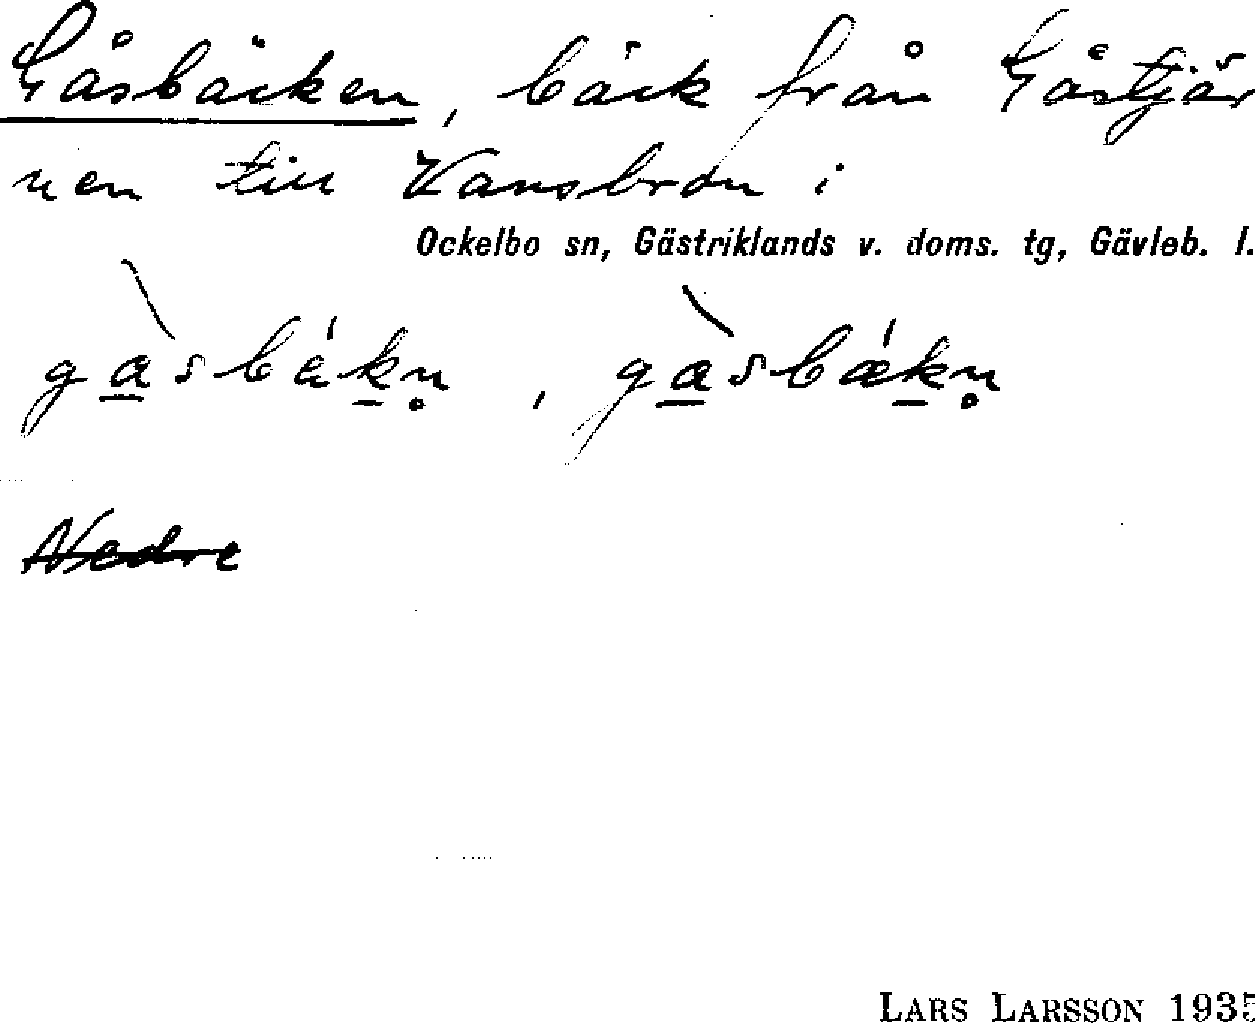 Gåsbäcken, bäck från Gåstjär
nen till Vansbron i
Ockelbo sn, Gästriklands v. doms. tg, Gävleb. l.
gàsbäkn̥, gàsbækn̥
Nedre
LARS LARSSON 1935